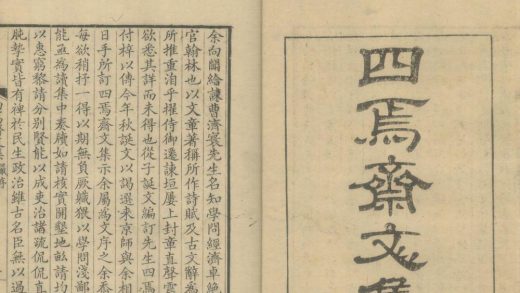 四焉齋文集
余向聞給諫曹濟寰先生名知學問經濟卓絶
官翰林也以文章著稱所作詩賦及古文辭爲
所推重洎乎擢侍御遷諫垣屢上封章直聲雲
欲悉其詳而未得也從子誕文編訂先生四焉
付梓以傳今年秋誕文以謁選來京師與余相
日手所訂四焉齋文集示余屬爲文序之余忝
每欲稍抒一得以期無負厥職獨以學問淺鄙
能無爲讀集中奏牘如請核實開墾地畝請均
以惠窮黎請分別賢能以成吏治講疏侃侃直
肫摯實皆有裨於民生政治雖古名臣無以過